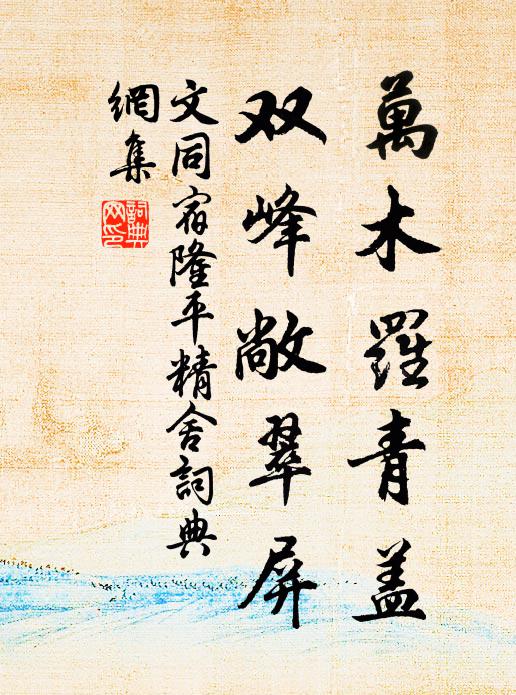 萬木羅青盖
双峰敞翠屏
文同宿隆平精舍詞典
網集
詞典
网印